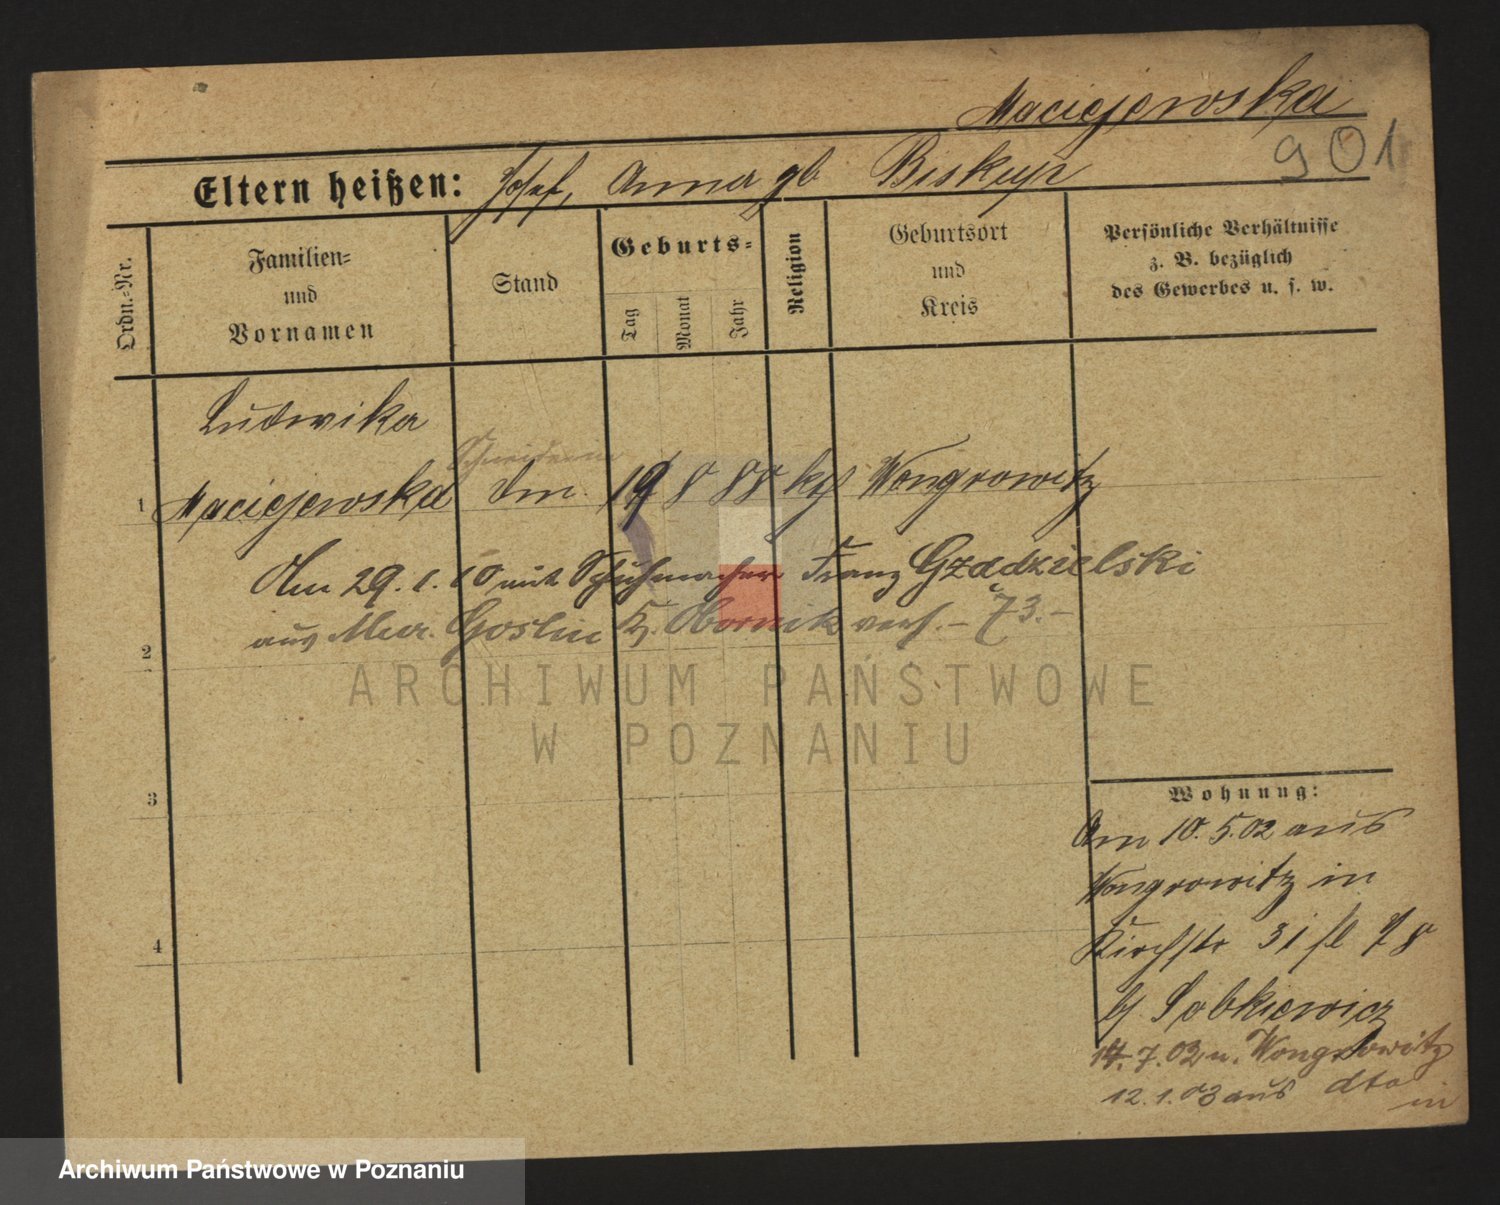 Maciejewska
901
Eltern heißen: Josef, Anna gb Biskup
Ordn.-Nr.
Familien-
und
Vornamen
Stand
Geburts-
Tag
Monat
Jahr
Religion
Geburtsort
und
Kreis
Persönliche Verhältnisse
z. B. bezüglich
des Gewerbes u. s. w.
Ludwika
Schneiderin
1 Maciejewska 19 8 88 kth Wongrowitz
Am 29.1.10 mit Schuhmacher Franz Gzadzielski
2 aus Mur. Goslin K. Obornik verh. – 73. –
ARCHIWUM PAŃSTWOWE
W POZNANIU
3
4
Wohnung:
Am 10.5.02 aus
Wongrowitz in
Kirchstr 31 78
b/ Sobkiewicz
14.7.02 n. Wongrowitz
12.1.03 aus dto in
Archiwum Państwowe w Poznaniu